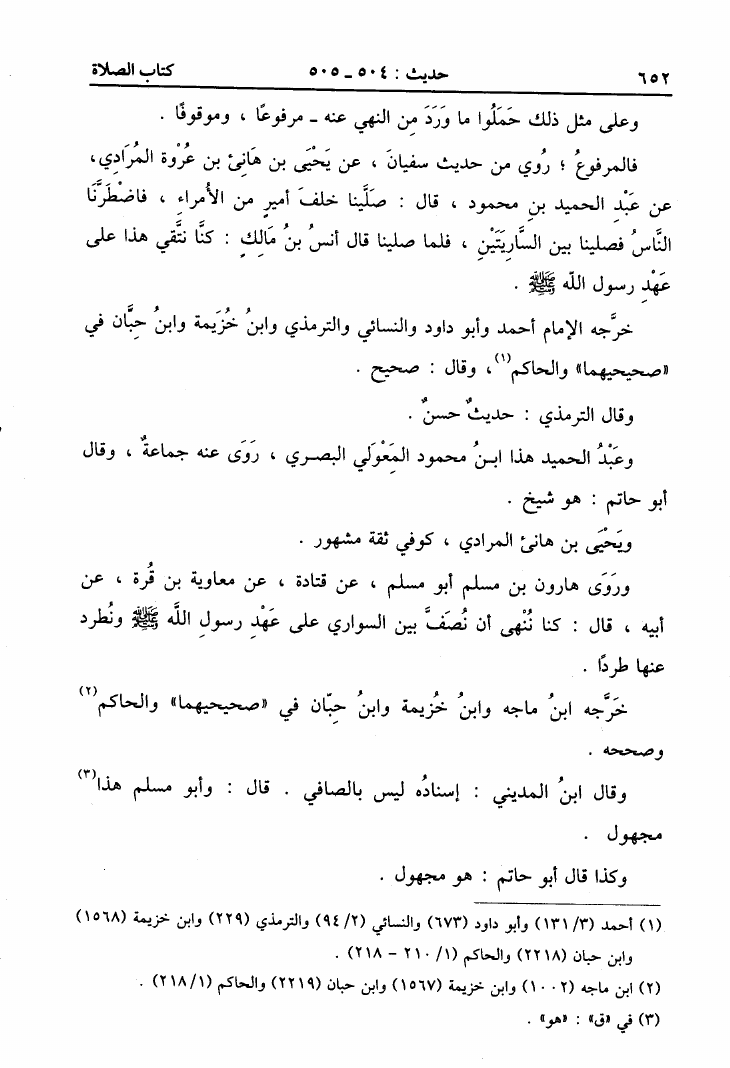 ٦٥٢ حديث : ٥٠٤ ــ ٥٠٥ كتاب الصلاة
وعلى مثل ذلك حَمَلُوا ما وَرَدَ مِن النهي عنه ــ مرفوعًا ، وموقوفًا .
فالمرفوعُ ؛ رُوي من حديث سفيانَ ، عن يَحْيَى بن هَانِئ بن عُرْوة المُرَادِي،
عن عَبْدِ الحميد بنِ محمود ، قال : صَلَّينا خلفَ أميرٍ من الأُمراءِ ، فاضْطَرَّنَا
النَّاسُ فصلينا بين السَّارِيَتَيْنِ ، فلما صلينا قال أنسُ بنُ مَالِكٍ : كنَّا نتَّقي هذا على
عَهْدِ رسول اللَّه ﷺ .
خرَّجه الإمام أحمد وأبو داود والنسائي والترمذي وابنُ خُزَيمة وابنُ حِبَّان في
«صحيحيهما» والحاكم(١)، وقال : صحيح .
وقال الترمذي : حديثٌ حسنٌ .
وعَبْدُ الحميد هذا ابنُ محمود المَعْوَلي البصري ، رَوَى عنه جماعةٌ ، وقال
أبو حاتم : هو شيخ .
ويَحْيَى بن هانئ المرادي ، كوفي ثقة مشهور .
ورَوَى هارون بن مسلم أبو مسلم ، عن قتادة ، عن معاوية بن قُرة ، عن
أبيه ، قال : كنا نُنْهى أن نُصَفَّ بين السواري على عَهْدِ رسولِ اللَّه ﷺ ونُطرد
عنها طردًا .
خَرَّجه ابنُ ماجه وابنُ خُزيمة وابنُ حِبّان في «صحيحيهما» والحاكم(٢)
وصححه .
وقال ابنُ المديني : إسنادُه ليس بالصافي . قال : وأبو مسلم هذا(٣)
مجهول .
وكذا قال أبو حاتم : هو مجهول .
(١) أحمد (١٣١/٣) وأبو داود (٦٧٣) والنسائي (٩٤/٢) والترمذي (٢٢٩) وابن خزيمة (١٥٦٨)
وابن حبان (٢٢١٨) والحاكم (٢١٠/١ - ٢١٨) .
(٢) ابن ماجه (١٠٠٢) وابن خزيمة (١٥٦٧) وابن حبان (٢٢١٩) والحاكم (٢١٨/١) .
(٣) في «ق» : «هو» .